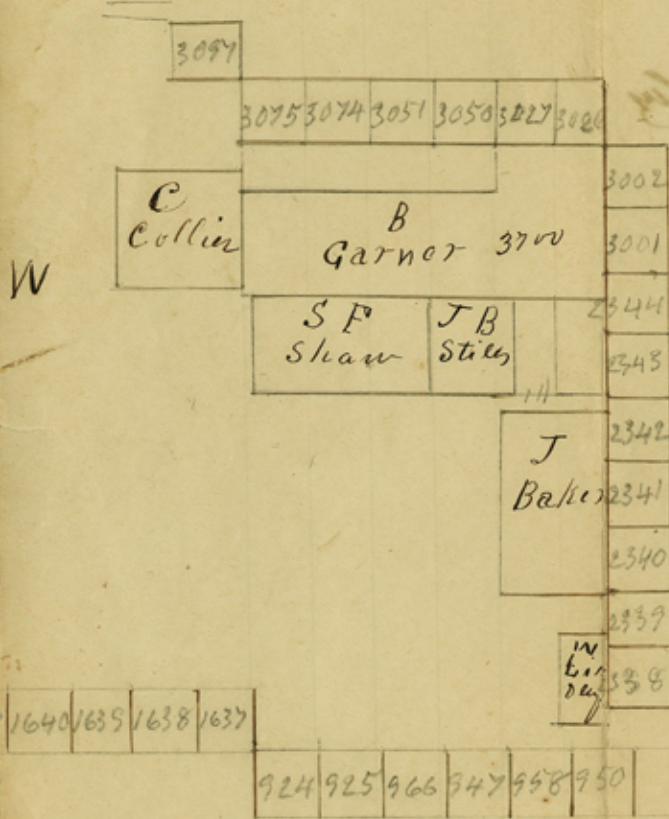 3097
3075 3074 3051 3050 3027 3026
3002
C
Collier
B
Garner 3700
3001
W
2344
S F
Shaw
J B
Stiles
2343
2342
J
Baker
2341
2340
2339
W
2338
1640 1639 1638 1637
924 925 966 947 958 950